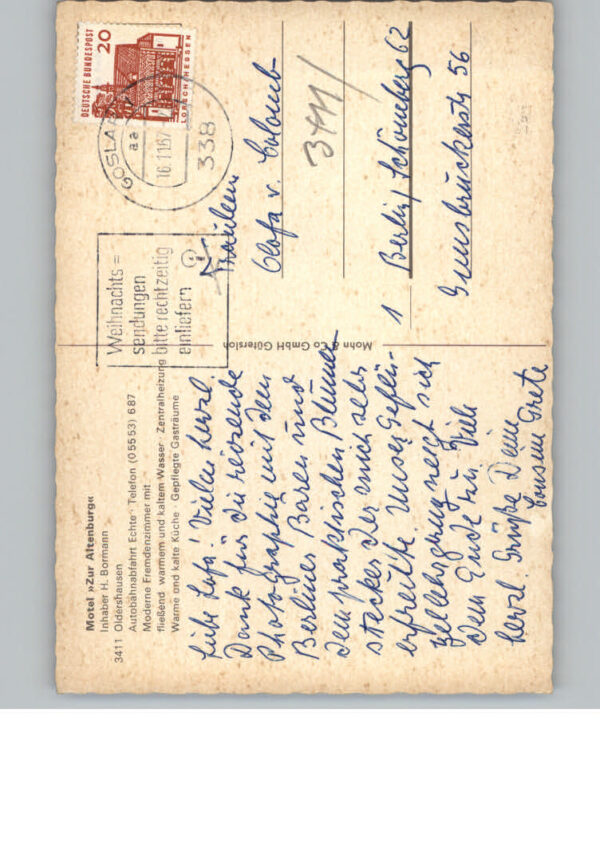 Motel »Zur Altenburg«
Inhaber H. Bormann
3411 Oldershausen
Autobahnabfahrt Echte · Telefon (05553) 687
Moderne Fremdenzimmer mit
fließend warmem und kaltem Wasser · Zentralheizung
Warme und kalte Küche · Gepflegte Gasträume
Liebe Lofa! Vielen herzl.
Dank für die reizende
Photographie mit dem
Berliner Bären und
dem praktischen Blumen
stecker der mich sehr
erfreute. Unser Geflü-
neigt sich
dem Ende zu. Viele
herzl. Grüße Deine
Cousine Grete
Mohn & Co GmbH Gütersloh
Weihnachts=
sendungen
bitte rechtzeitig
einliefern
DEUTSCHE BUNDESPOST
20
LORSCH/HESSEN
GOSLAR
aa
16.11.67
338
Fräulein
Olofa v. Colomb
1 Berlin/Schöneberg 62
Innsbruckerstr 56